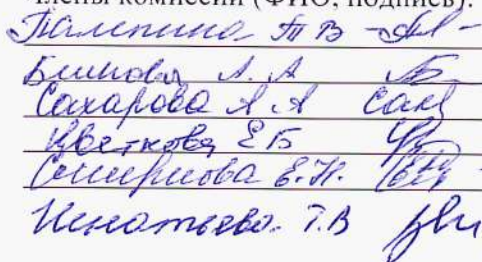 Члены комиссии (ФИО, подпись):
Палкина Т В
Блинова А. А
Сахарова А. А Сах
Цветкова Е Б
Смирнова Е. Н.
Игнатьева Т. В